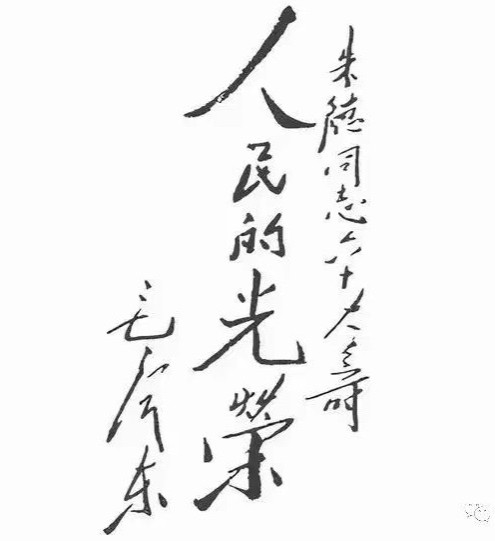 朱德同志六十大壽
人民的光榮
毛澤东